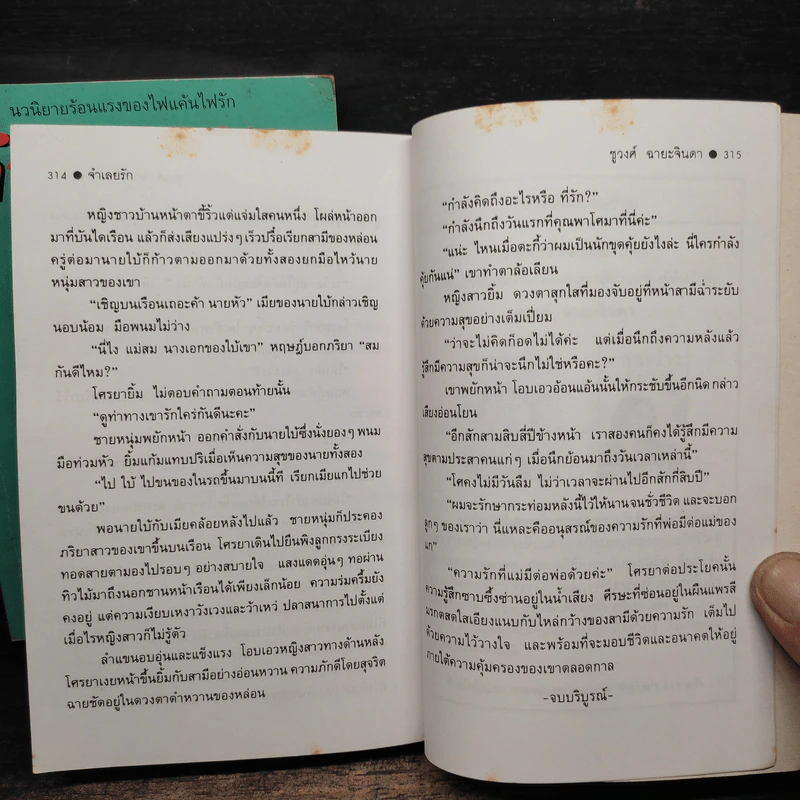 นวนิยายร้อนแรงของไฟแค้นไฟรัก
314 ● จำเลยรัก
หญิงชาวบ้านหน้าตาขี้ริ้วแต่แจ่มใสคนหนึ่ง โผล่หน้าออก
มาที่บันไดเรือน แล้วก็ส่งเสียงแปร่งๆ เร็วปรื๋อเรียกสามีของหล่อน
ครู่ต่อมานายใบ้ก็ก้าวตามออกมาด้วยทั้งสองยกมือไหว้นาย
หนุ่มสาวของเขา
“เชิญบนเรือนเถอะค้า นายหัว” เมียของนายใบ้กล่าวเชิญ
นอบน้อม มือพนมไม่วาง
“นี่ไง แม่สม นางเอกของใบ้เขา” หฤษฎ์บอกภริยา “สม
กันดีไหม?”
โศรยายิ้ม ไม่ตอบคำถามตอนท้ายนั้น
“ดูท่าทางเขารักใคร่กันดีนะคะ”
ชายหนุ่มพยักหน้า ออกคำสั่งกับนายใบ้ซึ่งนั่งยองๆ พนม
มือท่วมหัว ยิ้มแก้มแทบปริเมื่อเห็นความสุขของนายทั้งสอง
“ไป ใบ้ ไปขนของในรถขึ้นมาบนนี้ที เรียกเมียแกไปช่วย
ขนด้วย”
พอนายใบ้กับเมียคล้อยหลังไปแล้ว ชายหนุ่มก็ประคอง
ภริยาสาวของเขาขึ้นบนเรือน โศรยาเดินไปยืนพิงลูกกรงระเบียง
ทอดสายตามองไปรอบๆ อย่างสบายใจ แสงแดดอุ่นๆ ทอผ่าน
ทิวไม้มาถึงนอกชานหน้าเรือนได้เพียงเล็กน้อย ความร่มครึ้มยัง
คงอยู่ แต่ความเงียบเหงาวังเวงและว้าเหว่ ปลาสนาการไปตั้งแต่
เมื่อไรหญิงสาวก็ไม่รู้ตัว
ลำแขนอบอุ่นและแข็งแรง โอบเอวหญิงสาวทางด้านหลัง
โศรยาเงยหน้าขึ้นยิ้มกับสามีอย่างอ่อนหวาน ความภักดีโดยสุจริต
ฉายชัดอยู่ในดวงตาดำหวานของหล่อน
ชูวงศ์ ฉายะจินดา ● 315
“กำลังคิดถึงอะไรหรือ ที่รัก?”
“กำลังนึกถึงวันแรกที่คุณพาโศมาที่นี่ค่ะ”
“แน่ะ ไหนเมื่อตะกี้ว่าผมเป็นนักขุดคุ้ยยังไงล่ะ นี่ใครกำลัง
คุ้ยกันแน่” เขาทำตาล้อเลียน
หญิงสาวยิ้ม ดวงตาสุกใสที่มองจับอยู่ที่หน้าสามีฉ่ำระยับ
ด้วยความสุขอย่างเต็มเปี่ยม
“ว่าจะไม่คิดก็อดไม่ได้ค่ะ แต่เมื่อนึกถึงความหลังแล้ว
รู้สึกมีความสุขก็น่าจะนึกไม่ใช่หรือคะ?”
เขาพยักหน้า โอบเอวอ้อนแอ้นนั้นให้กระชับขึ้นอีกนิด กล่าว
เสียงอ่อนโยน
“อีกสักสามสิบสี่ปีข้างหน้า เราสองคนก็คงได้รู้สึกมีความ
สุขตามประสาคนแก่ๆ เมื่อนึกย้อนมาถึงวันเวลาเหล่านี้”
“โศคงไม่มีวันลืม ไม่ว่าเวลาจะผ่านไปอีกสักกี่สิบปี”
“ผมจะรักษากระท่อมหลังนี้ไว้ให้นานจนชั่วชีวิต และจะบอก
ลูกๆ ของเราว่า นี่แหละคืออนุสรณ์ของความรักที่พ่อมีต่อแม่ของ
แก”
“ความรักที่แม่มีต่อพ่อด้วยค่ะ” โศรยาต่อประโยคนั้น
ความรู้สึกซาบซึ้งซ่านอยู่ในน้ำเสียง ศีรษะที่ซ่อนอยู่ในผืนแพรสี
มรกตสดใสเอียงแนบกับไหล่กว้างของสามีด้วยความรัก เต็มไป
ด้วยความไว้วางใจ และพร้อมที่จะมอบชีวิตและอนาคตให้อยู่
ภายใต้ความคุ้มครองของเขาตลอดกาล
-จบบริบูรณ์-